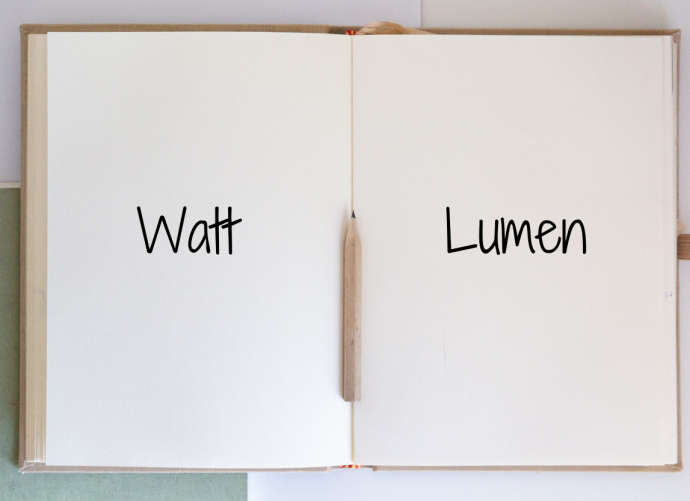 Watt
Lumen